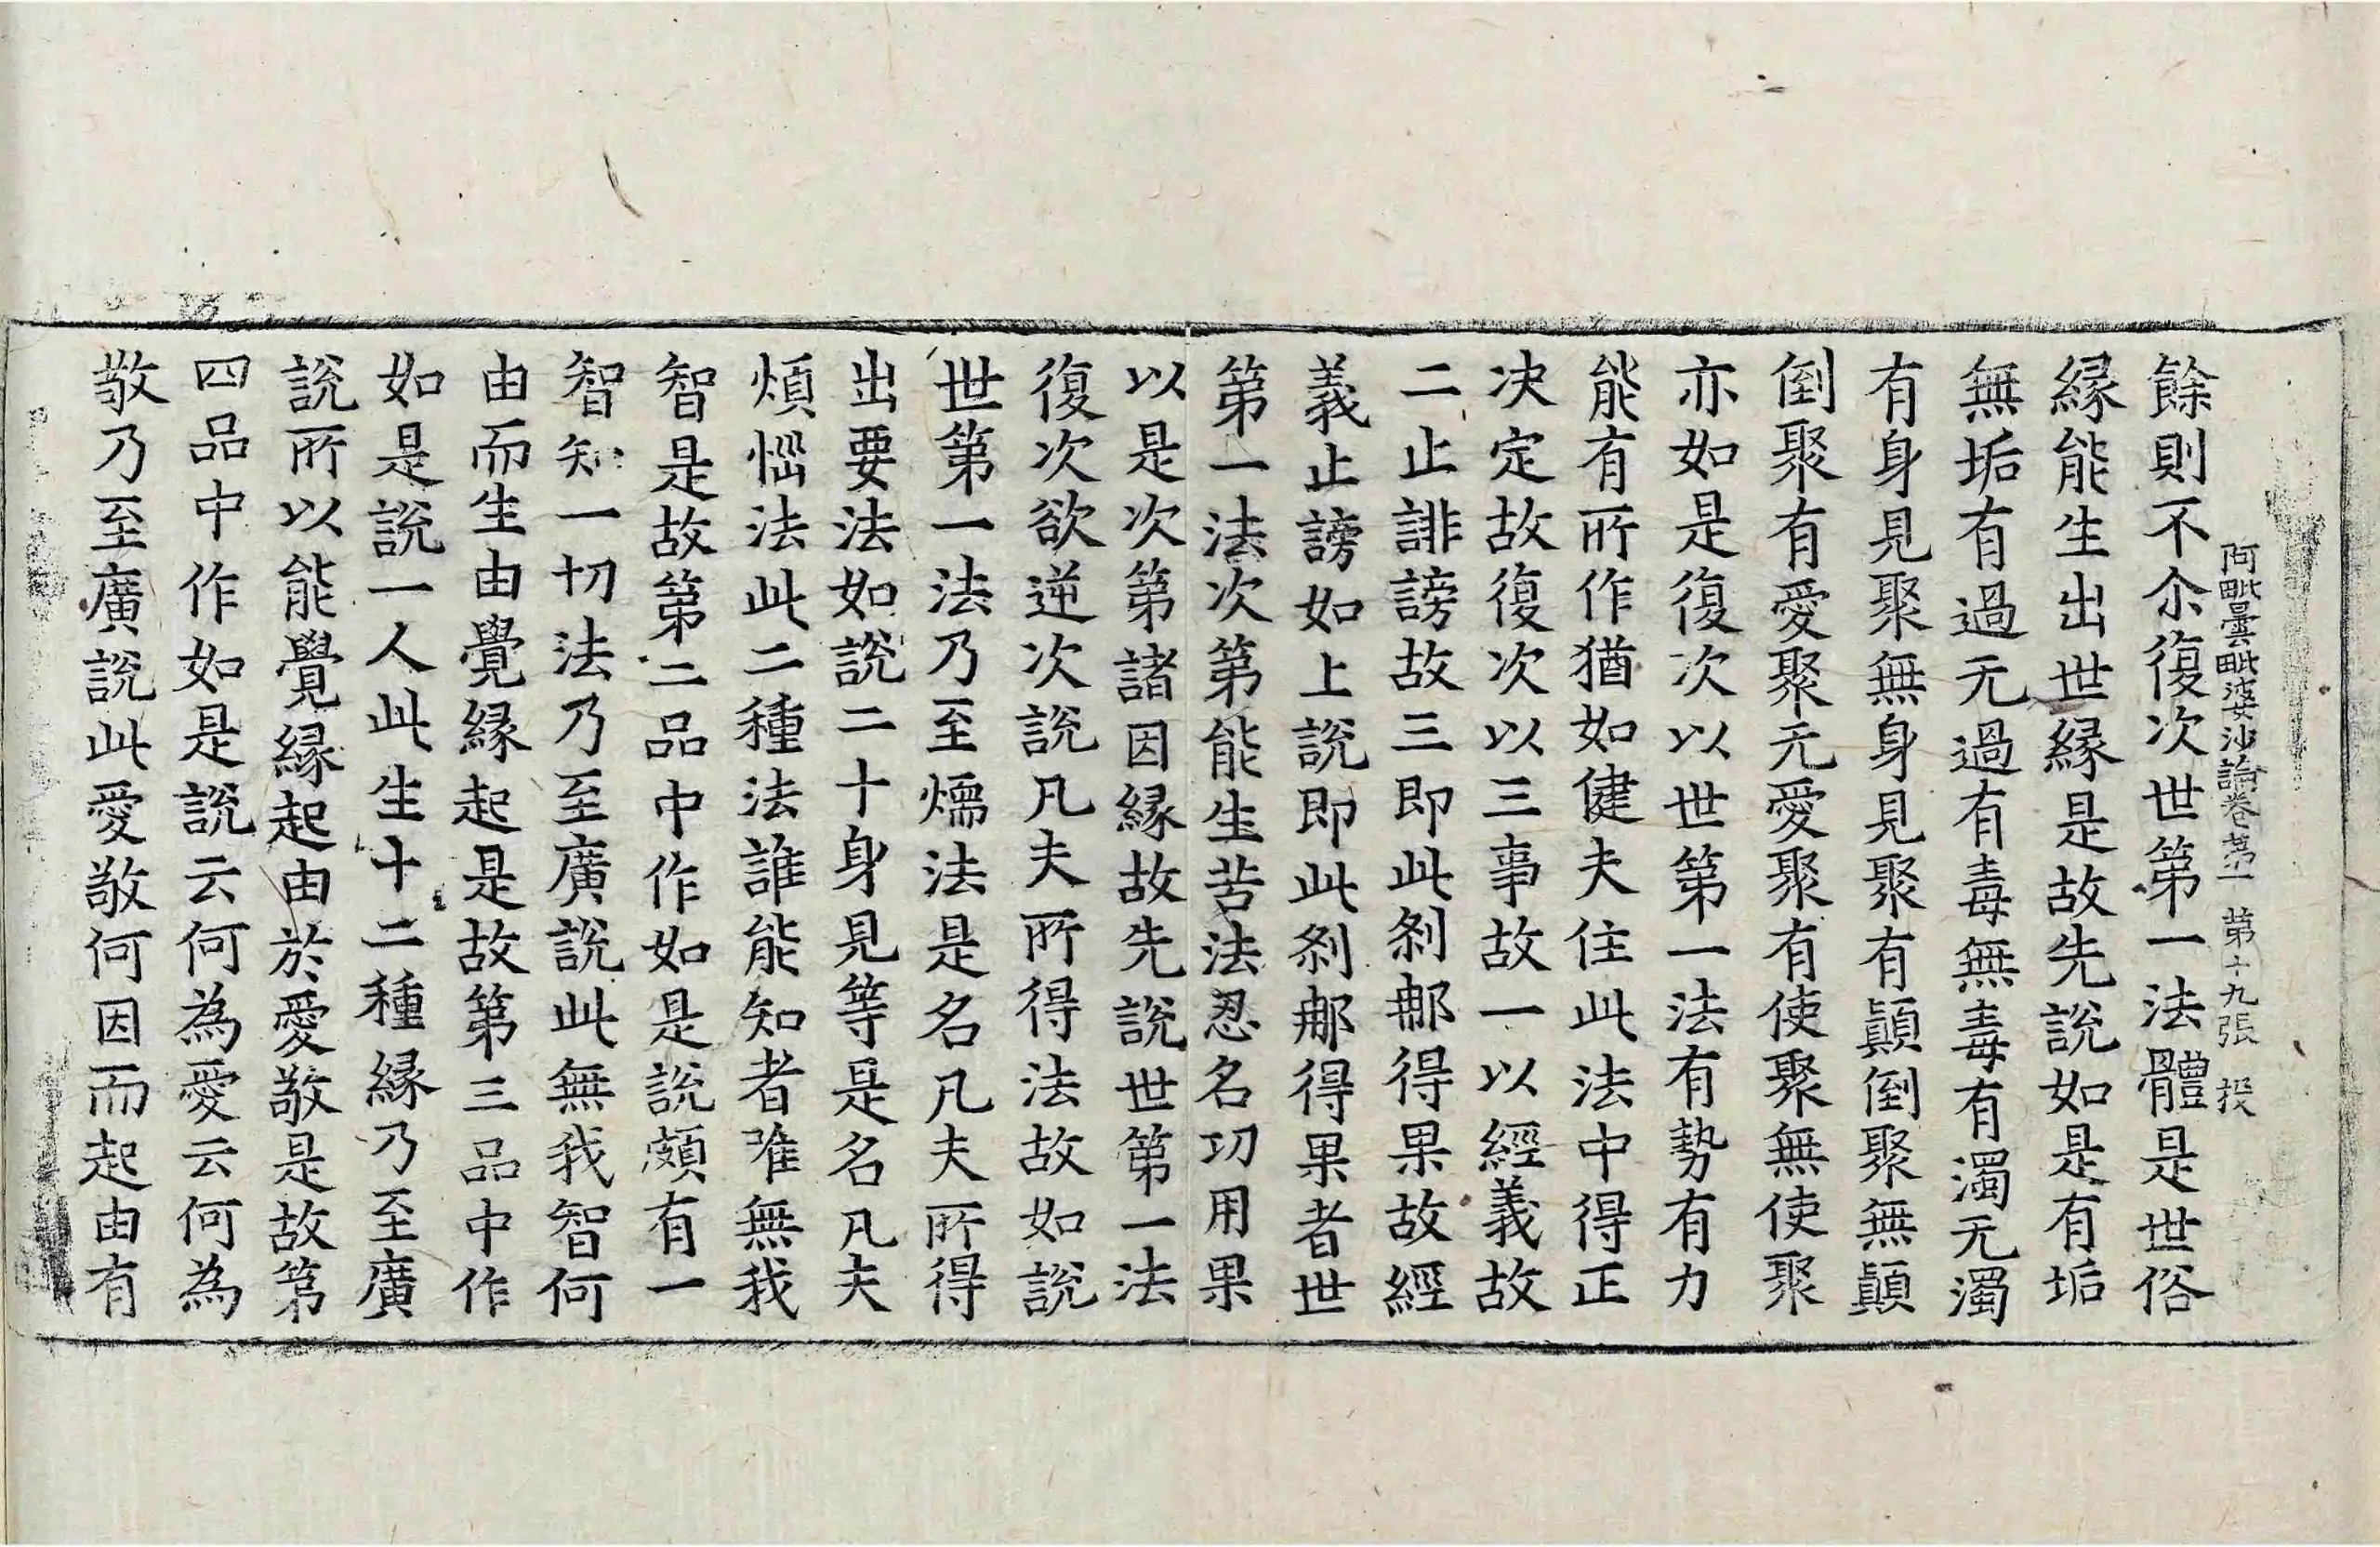 阿毗曇毗婆沙論卷第一 第十九張 投
餘則不尒復次世第一法體是世俗
縁能生出世縁是故先說如是有垢
無垢有過无過有毒無毒有濁无濁
有身見聚無身見聚有顛倒聚無顛
倒聚有愛聚无愛聚有使聚無使聚
亦如是復次以世第一法有勢有力
能有所作猶如健夫住此法中得正
决定故復次以三事故一以經義故
二止誹謗故三即此剎那得果故經
義止謗如上說即此剎那得果者世
第一法次第能生苦法忍名功用果
以是次第諸因縁故先說世第一法
復次欲逆次說凡夫所得法故如說
世第一法乃至燸法是名凡夫所得
出要法如說二十身見等是名凡夫
煩惱法此二種法誰能知者唯無我
智是故第二品中作如是說頗有一
智知一切法乃至廣說此無我智何
由而生由覺縁起是故第三品中作
如是說一人此生十二種縁乃至廣
說所以能覺縁起由於愛敬是故第
四品中作如是說云何為愛云何為
敬乃至廣說此愛敬何因而起由有